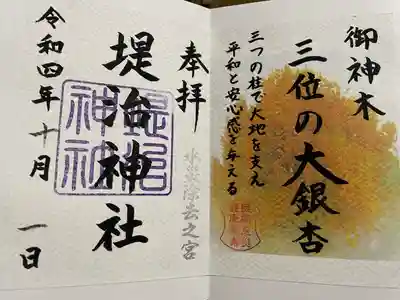 御神木
三位の大銀杏
三つの柱で大地を支え
平和と安心感を与える
奉拝
水災除去之宮
堤治神社
堤治神社
令和四年十月一日